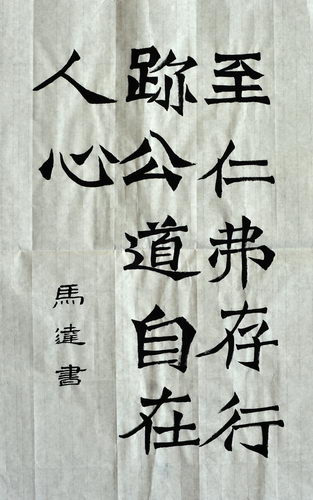 至仁弗存行
跡公道自在
人心
馬達書